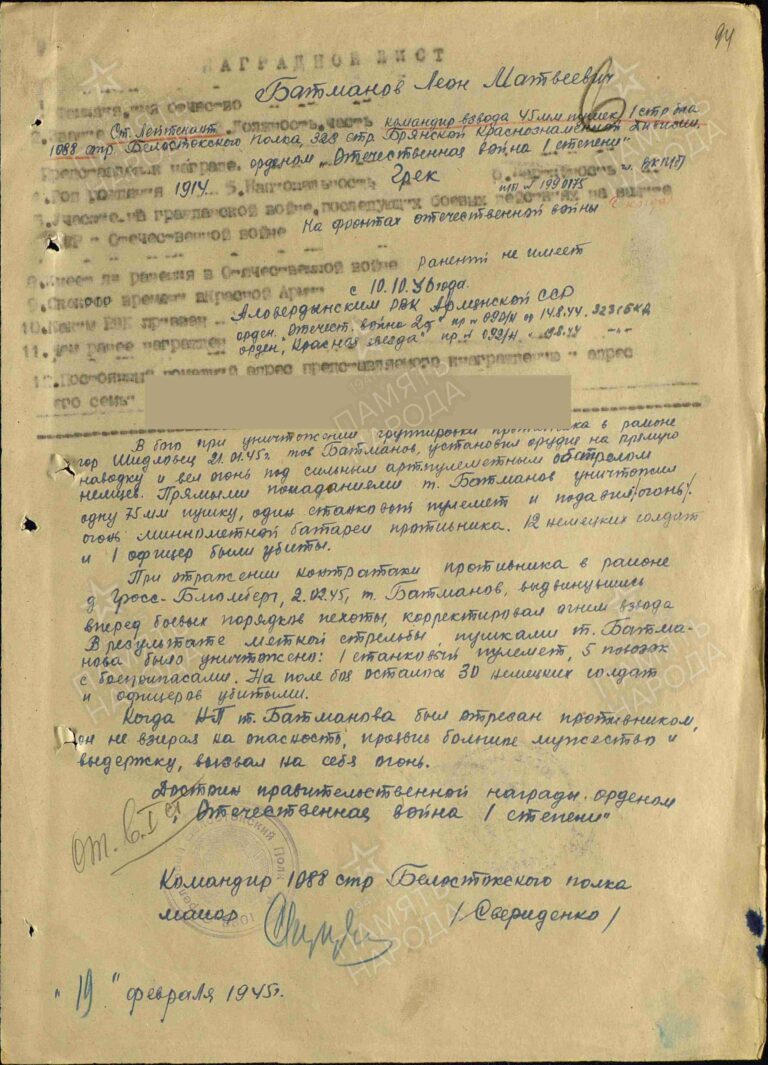 94
НАГРАДНОЙ ЛИСТ
Батманов Леон Матвеевич
Ст. Лейтенант командир взвода 45 мм пушек 1 стр б-на
1088 стр. Белостокского полка, 323 стр. Брянской Краснознаменной дивизии,
орденом „Отечественная война I степени"
4. Год рождения 1914 5. Национальность Грек 6. Партийность чл. ВКП(б)
пб № 1990175
На фронтах отечественной войны
СССР и Отечественной войне
8. Имеет ли ранения в Отечественной войне ранений не имеет
9. С какого времени в Красной Армии с 10.10.36 года.
10. Каким РВК призван Аловердынским РВК Армянской ССР
орден. „Отечест. война 2 ст" пр. № 090/н от 14.8.44. 323 СБКД
11. Чем ранее награжден орден „Красная звезда" пр. № 092/н 19.8.44 -"-
12. Постоянный домашний адрес представляемого к награждению и адрес
его семьи
В бою при уничтожении группировки противника в районе
гор Шидловец 21.01.45г. тов Батманов, установил орудие на прямую
наводку и вел огонь под сильным артпулеметным обстрелом
немцев. Прямыми попаданиями т. Батманов уничтожил
одну 75 мм пушку, один станковый пулемет и подавил /огонь/
огонь минометной батареи противника. 12 немецких солдат
и 1 офицер были убиты.
При отражении контратаки противника в районе
д Гросс-Блюмберг, 2.02.45, т. Батманов, выдвинувшись
вперед боевых порядков пехоты, корректировал огнем взвода
В результате меткой стрельбы пушками т. Батма-
нова было уничтожено: 1 станковый пулемет, 5 повозок
с боеприпасами. На поле боя осталось 30 немецких солдат
и офицеров убитыми.
Когда НП т. Батманова был отрезан противником,
он не взирая на опасность, проявив большое мужество и
выдержку, вызвал на себя огонь.
Достоин правительственной награды орденом
„Отечественная война I степени"
От. в. I ст
Командир 1088 стр Белостокского полка
майор /Свериденко/
„19" февраля 1945г.
ПАМЯТЬ НАРОДА